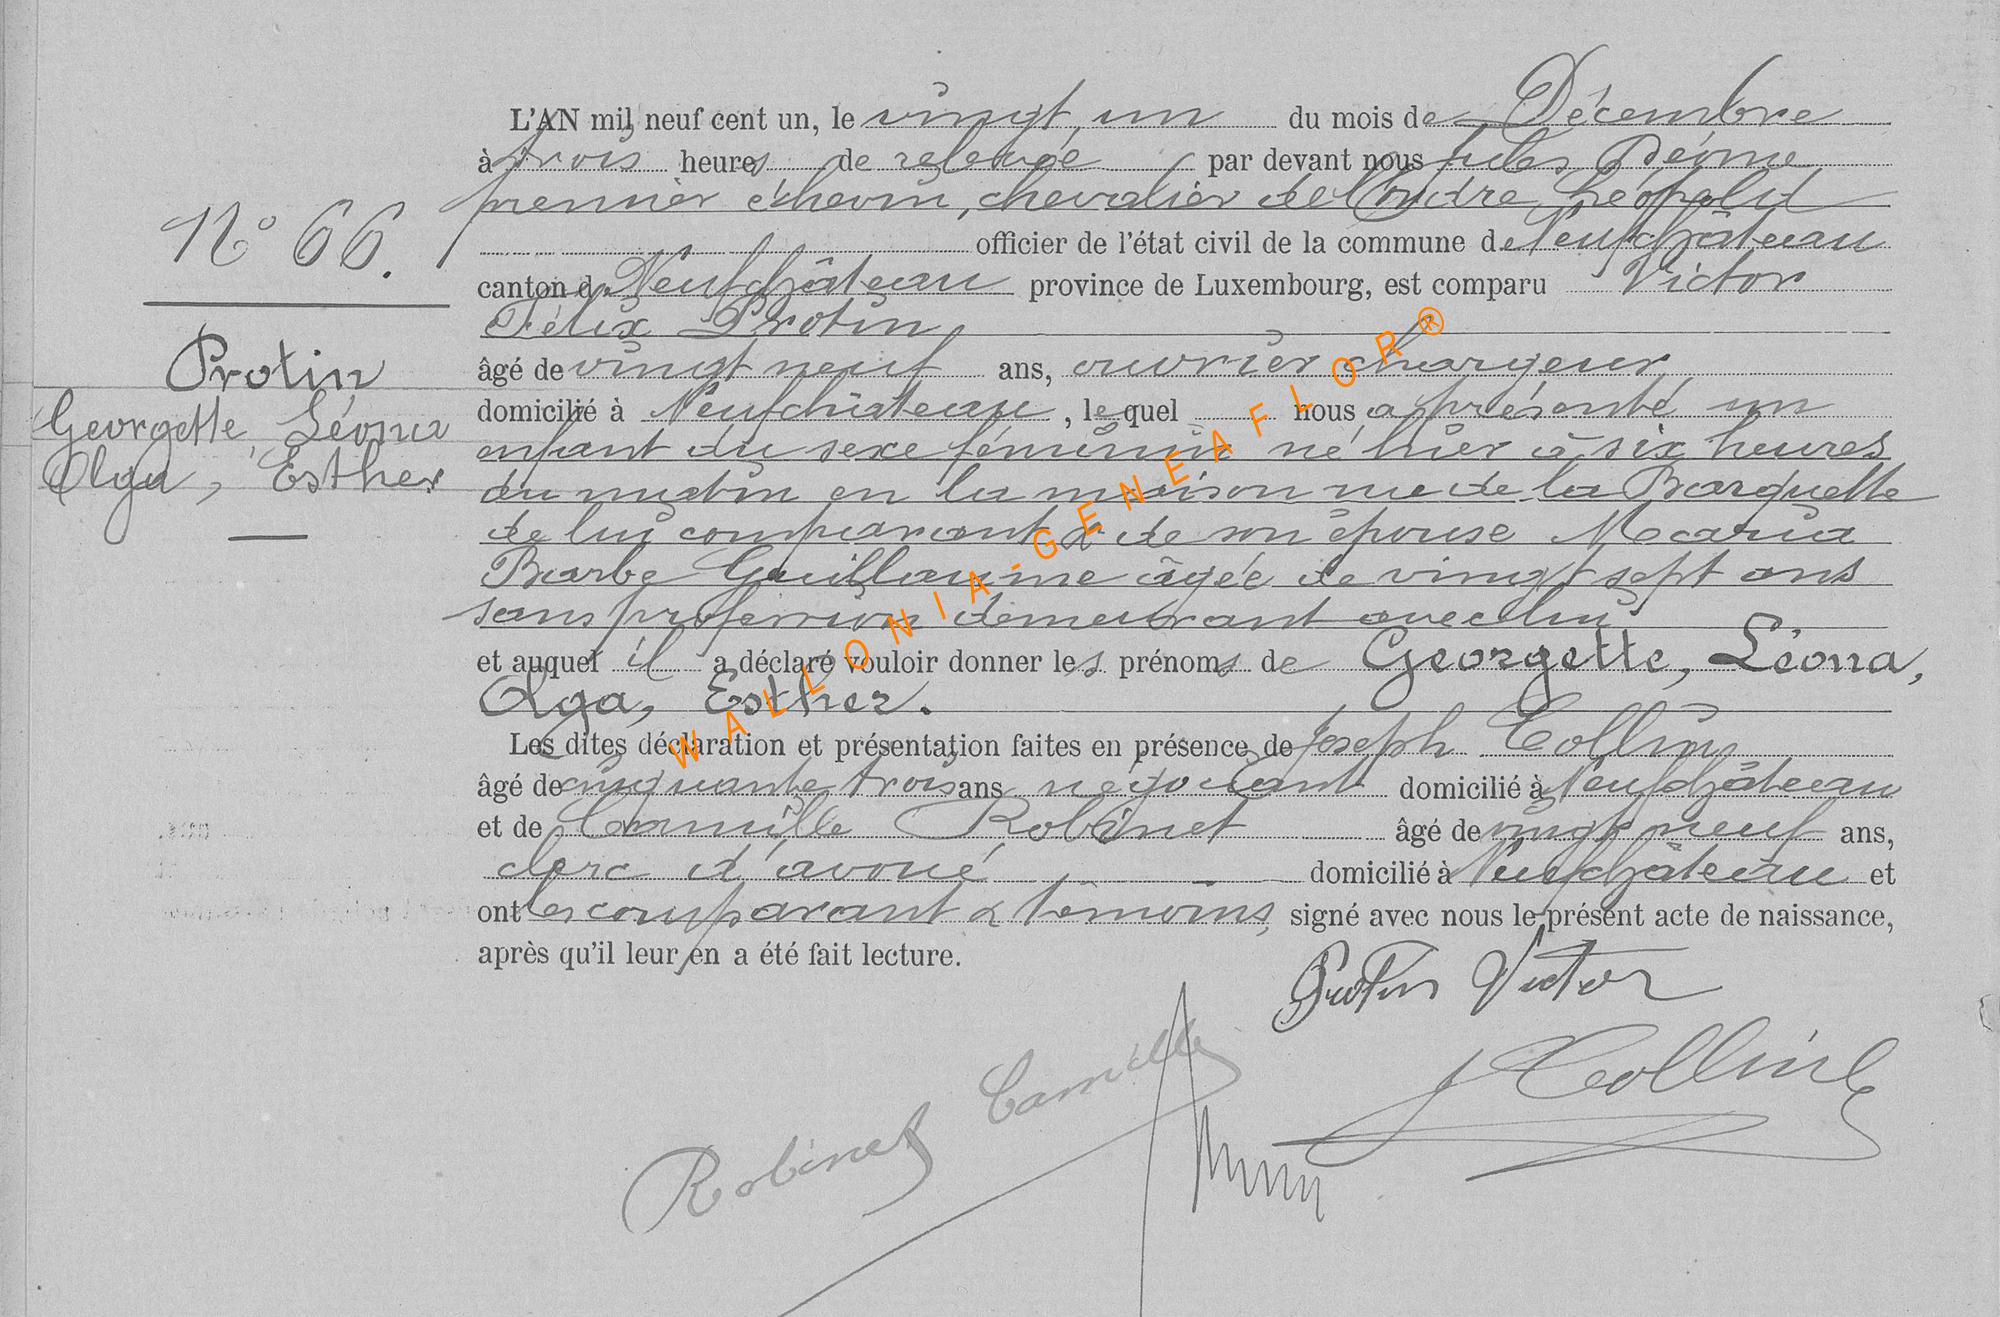 L'AN mil neuf cent un, le vingt un du mois de Décembre
à trois heures de relevée par devant nous Jules
premier échevin, chevalier de l'Ordre Léopold
officier de l'état civil de la commune de Neufchâteau
canton de Neufchâteau province de Luxembourg, est comparu Victor
Félix Protin
âgé de vingt neuf ans, ouvrier chargeur
domicilié à Neufchâteau, lequel nous a présenté un
enfant du sexe féminin né hier à six heures
du matin en la maison rue de la Barquette
de lui comparant & de son épouse Maria
Barbe Guillaume âgée de vingt sept ans
sans profession demeurant avec lui
et auquel il a déclaré vouloir donner les prénoms de Georgette, Léona,
Olga, Esther.
Les dites déclaration et présentation faites en présence de Joseph Collin
âgé de cinquante trois ans négociant domicilié à Neufchâteau
et de Camille Robinet âgé de vingt neuf ans,
clerc d'avoué domicilié à Neufchâteau et
ont les comparant & témoins signé avec nous le présent acte de naissance,
après qu'il leur en a été fait lecture.
N° 66.
Protin
Georgette, Léona
Olga, Esther
Protin Victor
J Collin
Robinet Camille
WALLONIA-GENEAFLOR®